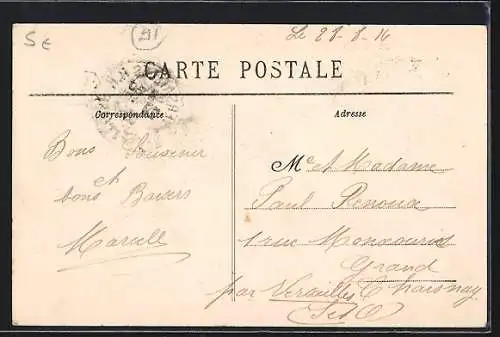 Le 28-8-16
CARTE POSTALE
Correspondance
Adresse
Bons Souvenir
et
bons Baisers
Marcelle
Mr et Madame
Paul Renoux
1 rue
Grand
par Versailles Chesnay
S et O